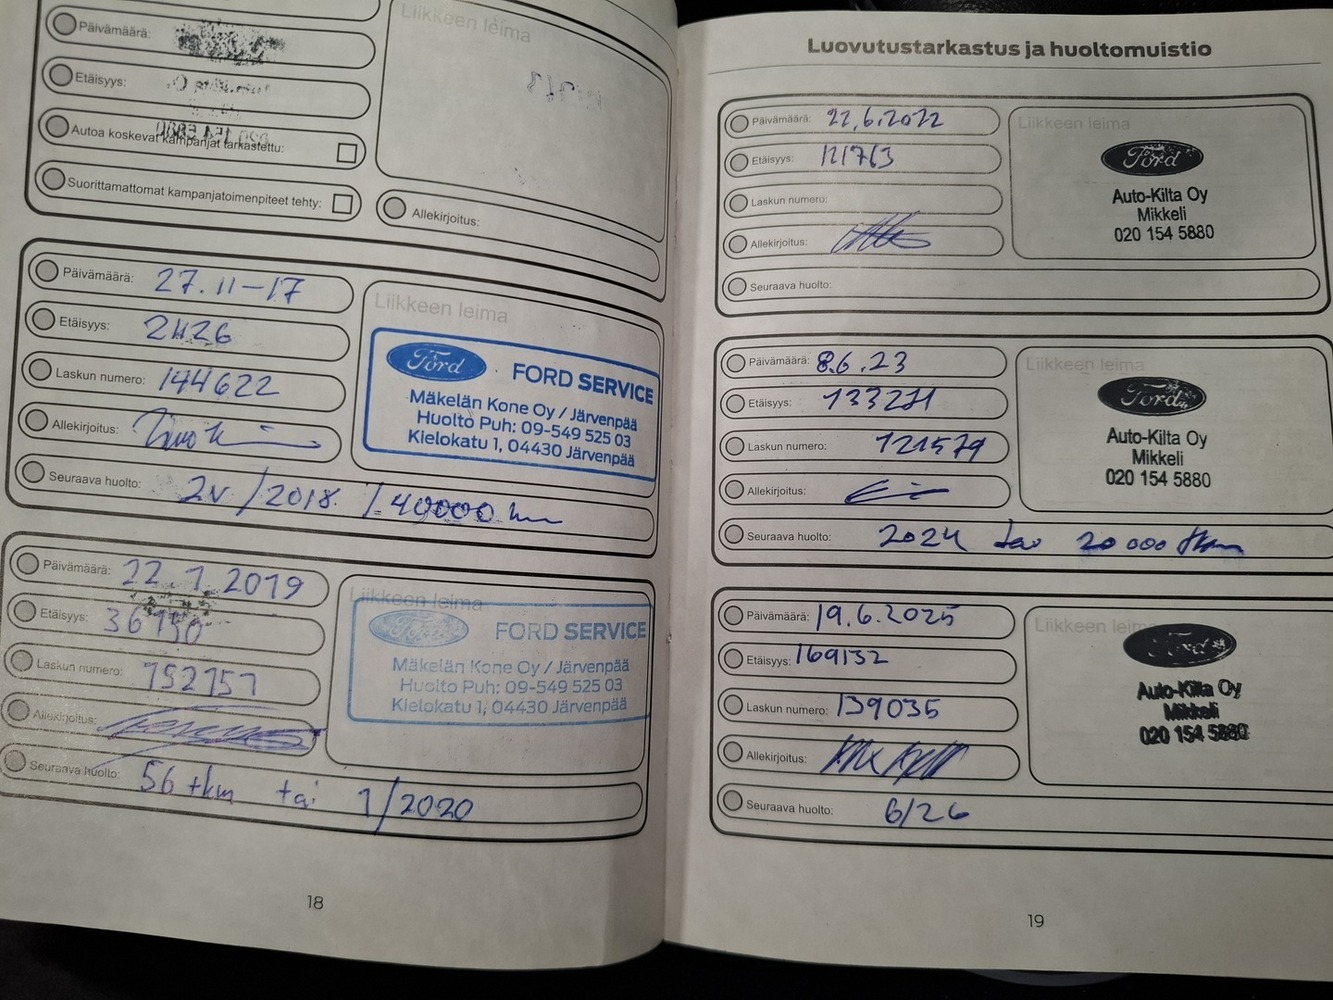 Liikkeen leima
Päivämäärä:
Etäisyys:
Autoa koskevat kampanjat tarkastettu:
Suorittamattomat kampanjatoimenpiteet tehty:
Allekirjoitus:
Päivämäärä: 27.11-17
Etäisyys: 2426
Laskun numero: 144622
Allekirjoitus:
Seuraava huolto: 2v/2018. /. 40000 km
Liikkeen leima
Ford FORD SERVICE
Mäkelän Kone Oy / Järvenpää
Huolto Puh: 09-549 525 03
Kielokatu 1, 04430 Järvenpää
Päivämäärä: 22.1.2019
Etäisyys: 36150
Laskun numero: 152151
Allekirjoitus:
Seuraava huolto: 56 tkm tai 1/2020
Liikkeen leima
Ford FORD SERVICE
Mäkelän Kone Oy / Järvenpää
Huolto Puh: 09-549 525 03
Kielokatu 1, 04430 Järvenpää
18
Luovutustarkastus ja huoltomuistio
Päivämäärä: 22.6.2022
Etäisyys: 121763
Laskun numero:
Allekirjoitus:
Seuraava huolto:
Liikkeen leima
Ford
Auto-Kilta Oy
Mikkeli
020 154 5880
Päivämäärä: 8.6.23
Etäisyys: 133271
Laskun numero: 121579
Allekirjoitus:
Seuraava huolto: 2024 tai 20 000 tkm
Liikkeen leima
Ford
Auto-Kilta Oy
Mikkeli
020 154 5880
Päivämäärä: 19.6.2025
Etäisyys: 169132
Laskun numero: 139035
Allekirjoitus:
Seuraava huolto: 6/26
Liikkeen leima
Ford
Auto-Kilta Oy
Mikkeli
020 154 5880
19